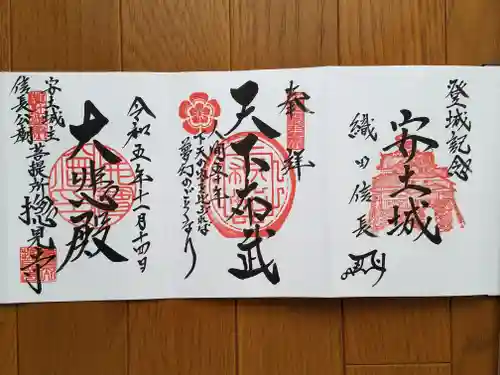 登城記念
安土城
織田信長
奉拝
天下布武
人間五十年
下天の内を比ぶれば
夢幻のごとくなり
令和五年十一月十四日
大悲殿
安土城主
信長公廟
菩提所
摠見寺